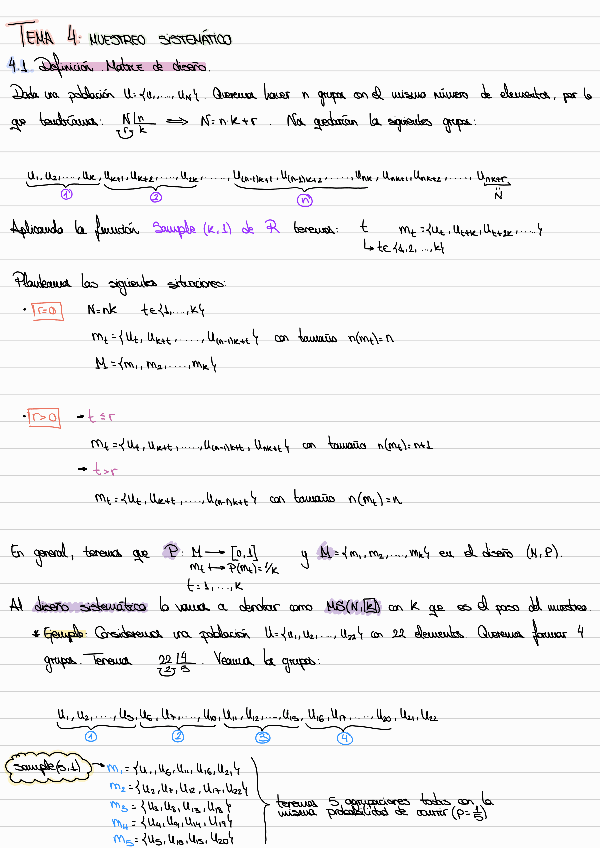 TEMA 4: MUESTREO SISTEMÁTICO
4.1 Definición. Matriz de diseño.
Dada una población U={u₁,...,u_N}. Queremos hacer n grupos con el mismo número de elementos, por lo
que tendríamos: N|n r k ⟹ N=n·k+r. Nos quedarían los siguientes grupos:
u₁,u₂,....,u_k,u_{k+1},u_{k+2},....,u_{2k},....,u_{(n-1)k+1},u_{(n-1)k+2},....,u_{nk},u_{nk+1},u_{nk+2},....,u_{nk+r}
① ② ⓝ N
Aplicando la función Sample(k,1) de R tenemos: t m_t={u_t,u_{t+k},u_{t+2k},....}
↳ t∈{1,2,...,k}
Planteamos las siguientes situaciones:
· r=0 N=nk t∈{1,...,k}
m_t={u_t,u_{k+t},....,u_{(n-1)k+t}} con tamaño n(m_t)=n
M={m₁,m₂,....,m_k}
· r>0 → t≤r
m_t={u_t,u_{k+t},....,u_{(n-1)k+t},u_{nk+t}} con tamaño n(m_t)=n+1
→ t>r
m_t={u_t,u_{k+t},....,u_{(n-1)k+t}} con tamaño n(m_t)=n
En general, tenemos que P: M → [0,1] y M={m₁,m₂,...,m_k} en el diseño (M,P).
m_t ↦ P(m_t)=1/k
t=1,...,k
Al diseño sistemático lo vamos a denotar como MS(N,k) con k que es el paso del muestreo.
* Ejemplo: Consideremos una población U={u₁,u₂,...,u₂₂} con 22 elementos. Queremos formar 4
grupos. Tenemos 22|4 2 5. Veamos los grupos:
u₁,u₂,...,u₅,u₆,u₇,....,u₁₀,u₁₁,u₁₂,...,u₁₅,u₁₆,u₁₇,....,u₂₀,u₂₁,u₂₂
① ② ③ ④
sample(5,1) → m₁={u₁,u₆,u₁₁,u₁₆,u₂₁}
m₂={u₂,u₇,u₁₂,u₁₇,u₂₂}
m₃={u₃,u₈,u₁₃,u₁₈}
m₄={u₄,u₉,u₁₄,u₁₉}
m₅={u₅,u₁₀,u₁₅,u₂₀}
tenemos 5 agrupaciones todas con la
misma probabilidad de ocurrir (p=1/5)